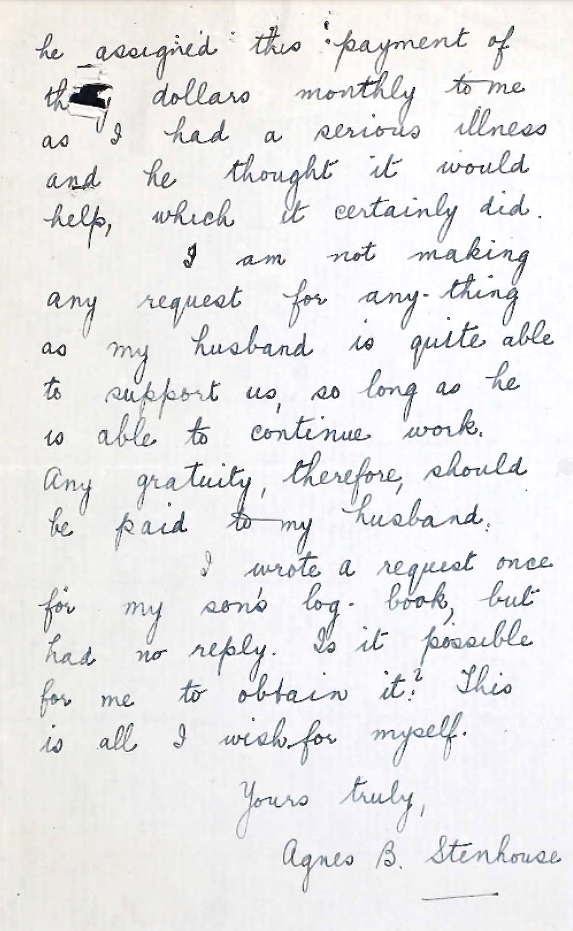 he assigned this payment of
dollars monthly to me
as I had a serious illness
and he thought it would
help, which it certainly did.
I am not making
any request for any-thing
as my husband is quite able
to support us, so long as he
is able to continue work.
Any gratuity, therefore, should
be paid to my husband.
I wrote a request once
for my son's log-book, but
had no reply. Is it possible
for me to obtain it? This
is all I wish for myself.
Yours truly,
Agnes B. Stenhouse